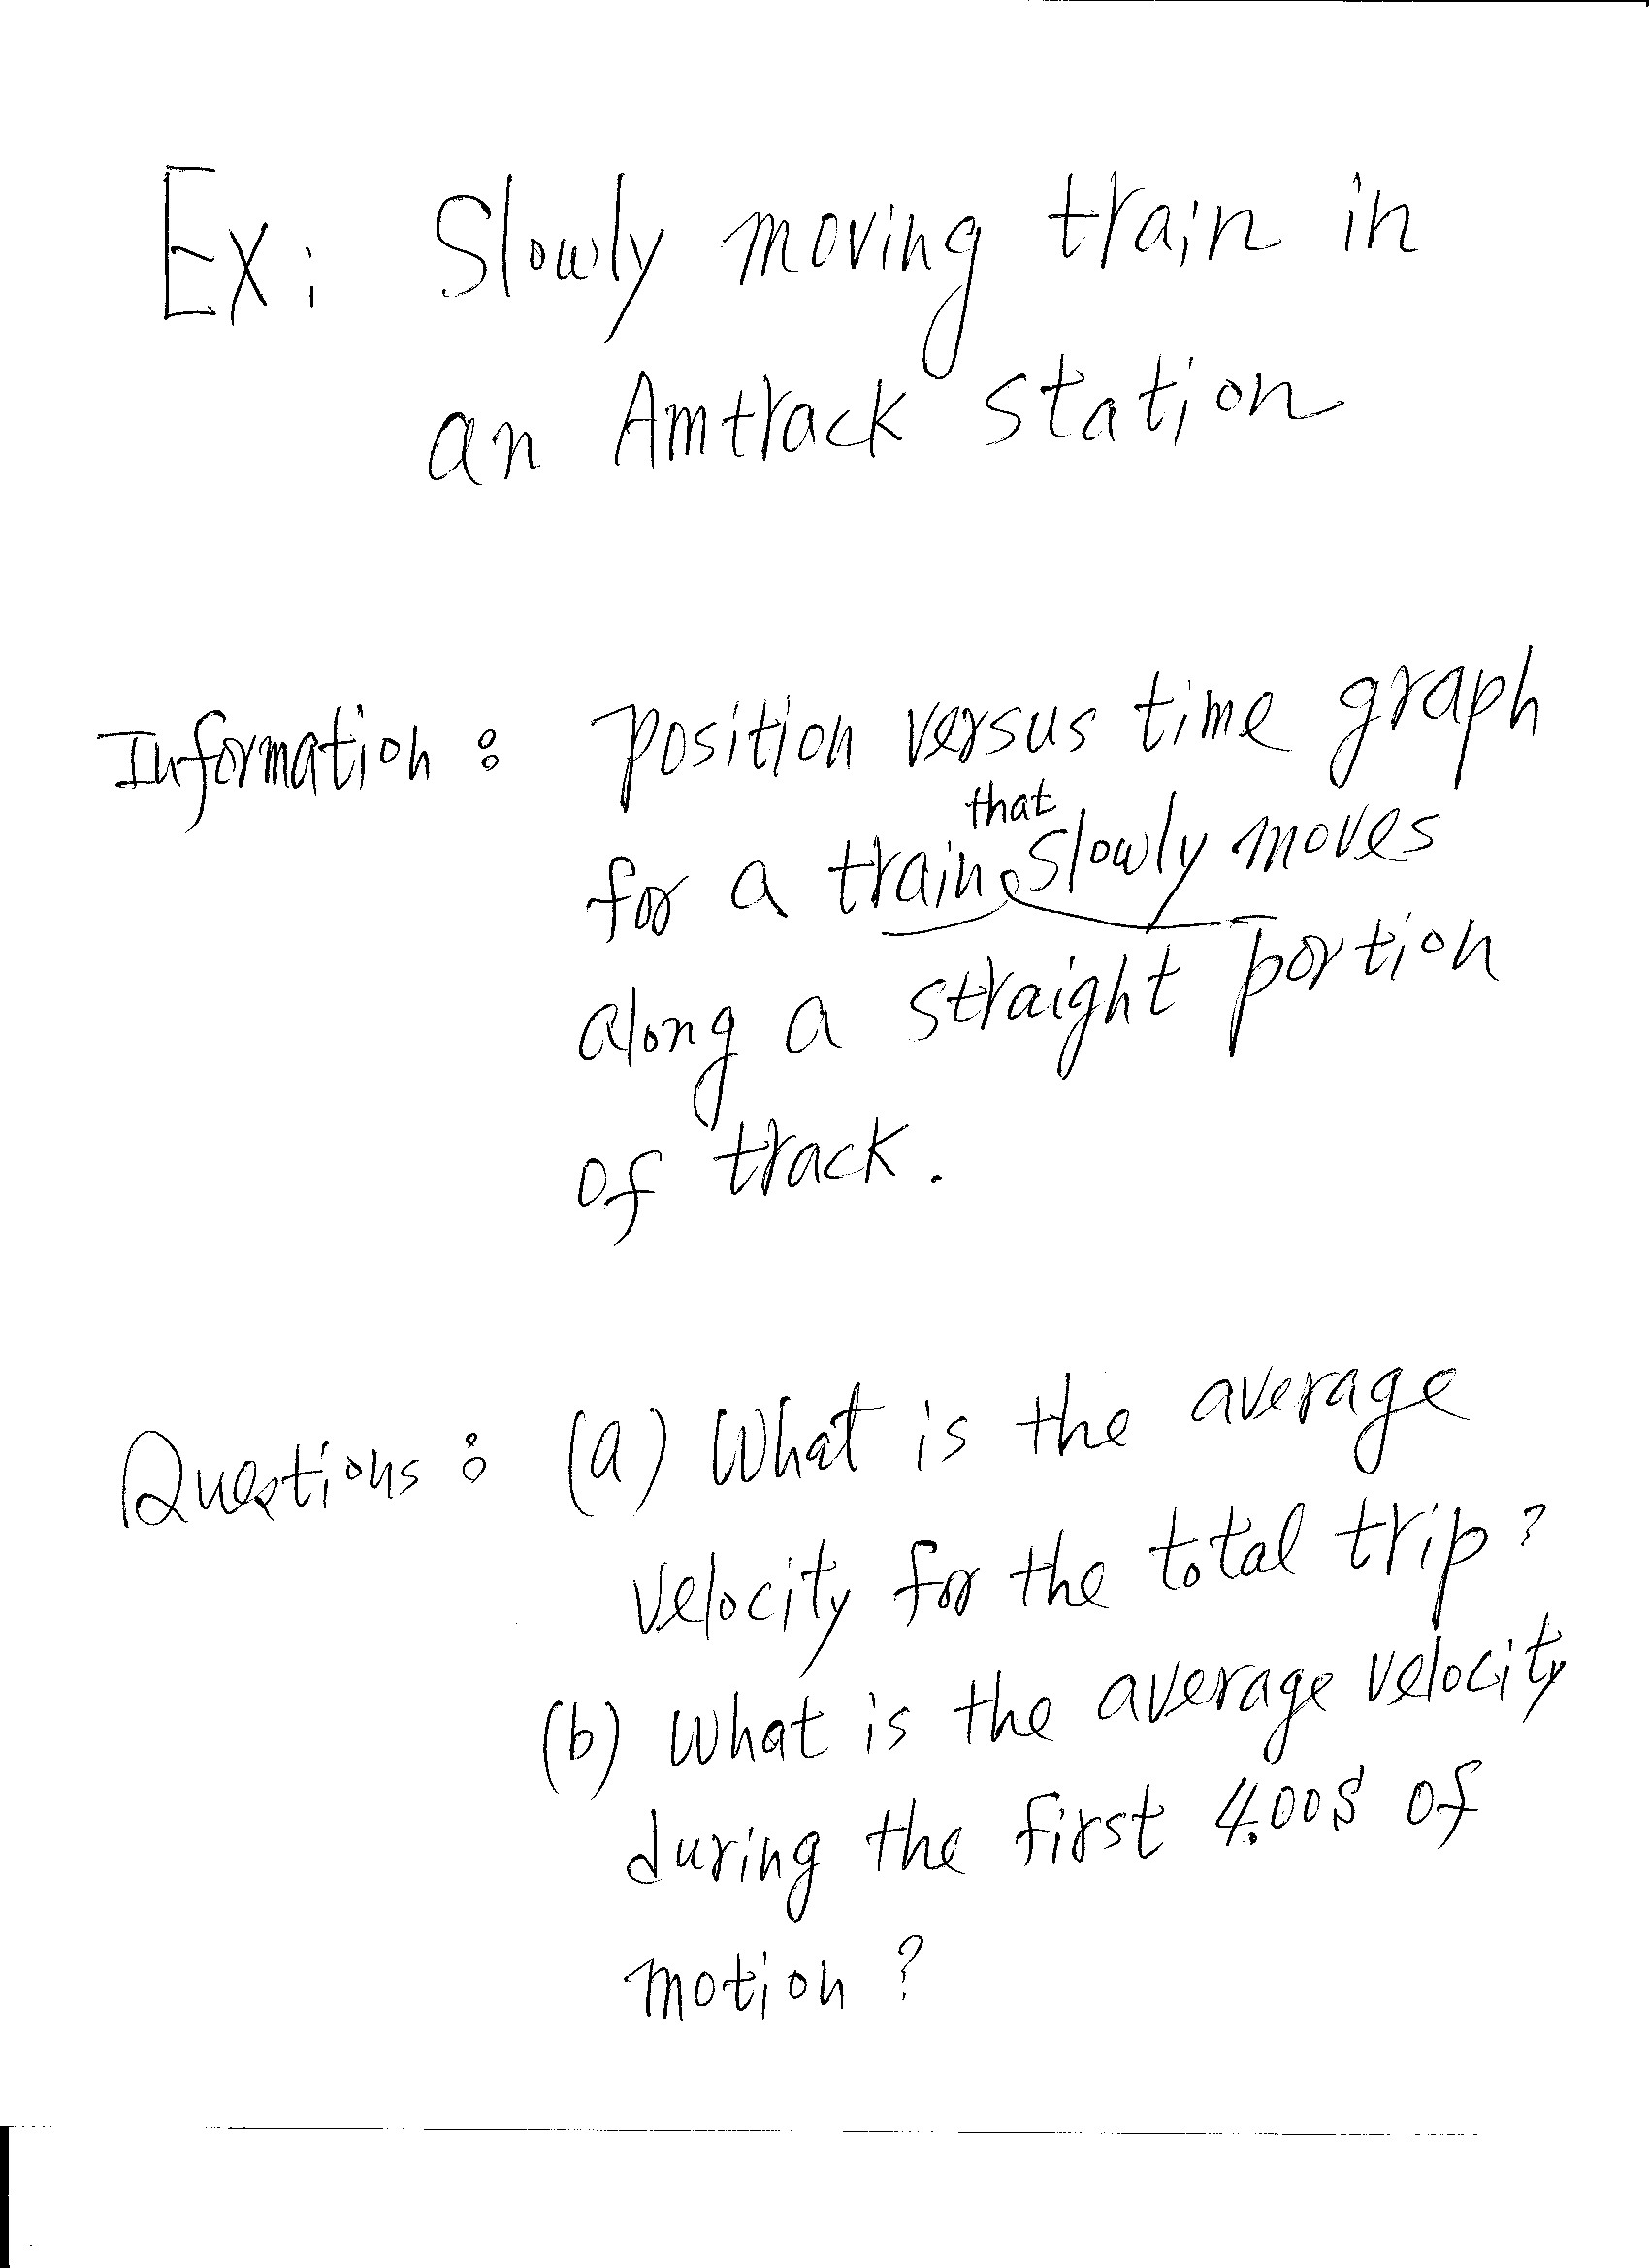 Ex: Slowly moving train in
an Amtrack station
Information: position versus time graph
for a train that slowly moves
along a straight portion
of track.
Questions: (a) What is the average
velocity for the total trip?
(b) What is the average velocity
during the first 4.00s of
motion?